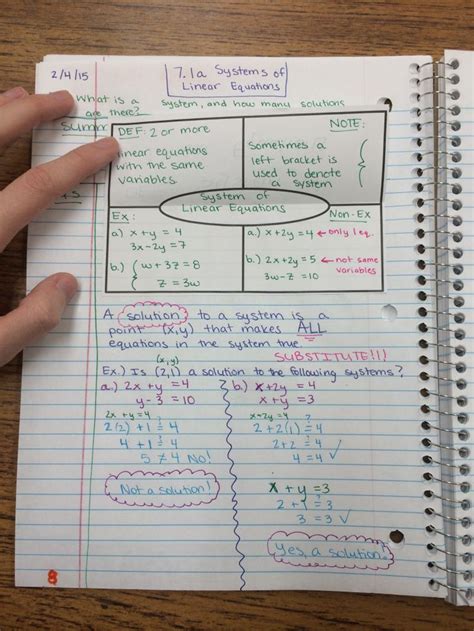 2/4/15
7.1a Systems of
Linear Equations
What is a system, and how many solutions
are there?
DEF: 2 or more
linear equations
with the same
variables.
NOTE:
Sometimes a
left bracket is
used to denote
a system
{
System of
Linear Equations
Ex:
a.) x+y = 4
3x-2y = 7
b.) { w + 3z = 8
z = 3w
Non-Ex
a.) x+2y = 4 ← only 1 eq.
b.) 2x+2y = 5 ← not same
variables
3w-z = 10
A solution to a system is a
point (x,y) that makes ALL
equations in the system true
SUBSTITUTE!!!
(x,y)
Ex.) Is (2,1) a solution to the following systems?
a.) 2x + y = 4
y-3 = 10
2x + y = 4
2(2) + 1 ≟ 4
4 + 1 ≟ 4
5 ≠ 4 No!
Not a solution!
b.) x+2y = 4
x+y = 3
x-2y = 4
2 + 2(1) ≟ 4
2+2 ≟ 4
4 = 4 ✓
x + y = 3
2 + 1 ≟ 3
3 = 3 ✓
Yes, a solution.
8